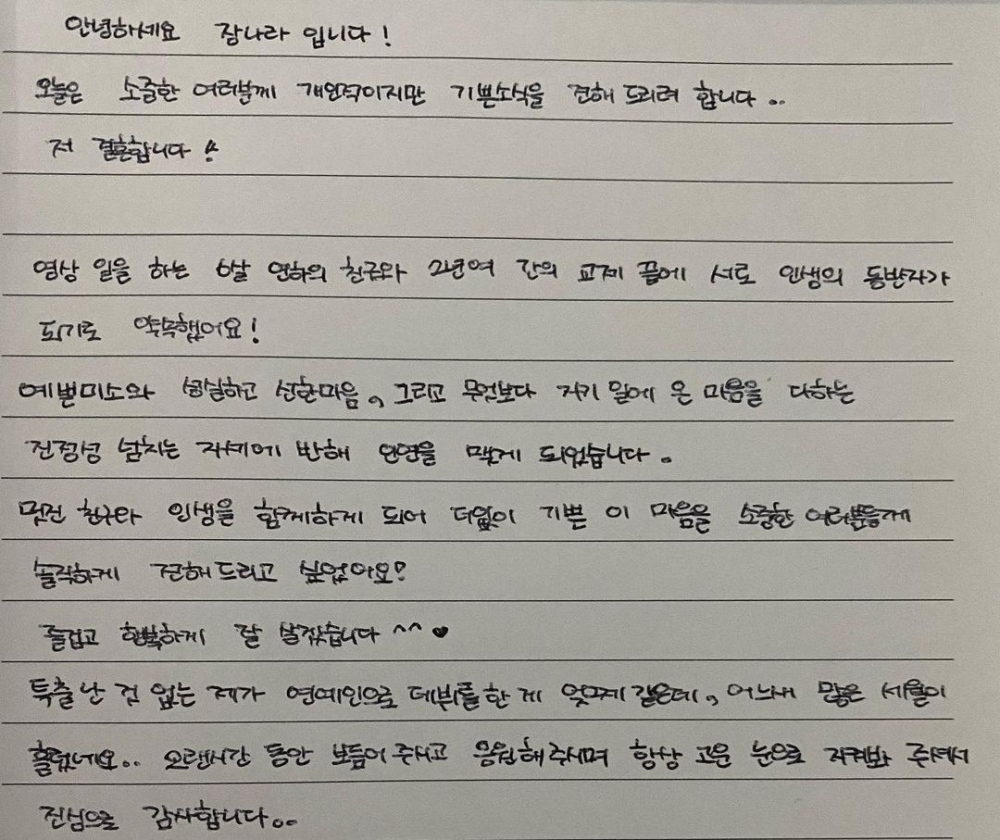 안녕하세요 장나라 입니다!
오늘은 소중한 여러분께 개인적이지만 기쁜소식을 전해 드리려 합니다..
저 결혼합니다
영상 일을 하는 6살 연하의 친구와 2년여 간의 교제 끝에 서로 인생의 동반자가
되기로 약속했어요!
예쁜미소와 성실하고 선한마음, 그리고 무엇보다 자기 일에 온 마음을 다하는
진정성 넘치는 자세에 반해 인연을 맺게 되었습니다.
멋진 친구와 인생을 함께하게 되어 더없이 기쁜 이 마음을 소중한 여러분들께
솔직하게 전해드리고 싶었어요!
즐겁고 행복하게 잘 살겠습니다 ^^ ♥
특출난 것 없는 제가 연예인으로 데뷔를한 게 엊그제 같은데, 어느새 많은 세월이
흘렀네요.. 오랜시간 동안 보듬어주시고 응원해주시며 항상 고운 눈으로 지켜봐 주셔서
진심으로 감사합니다..